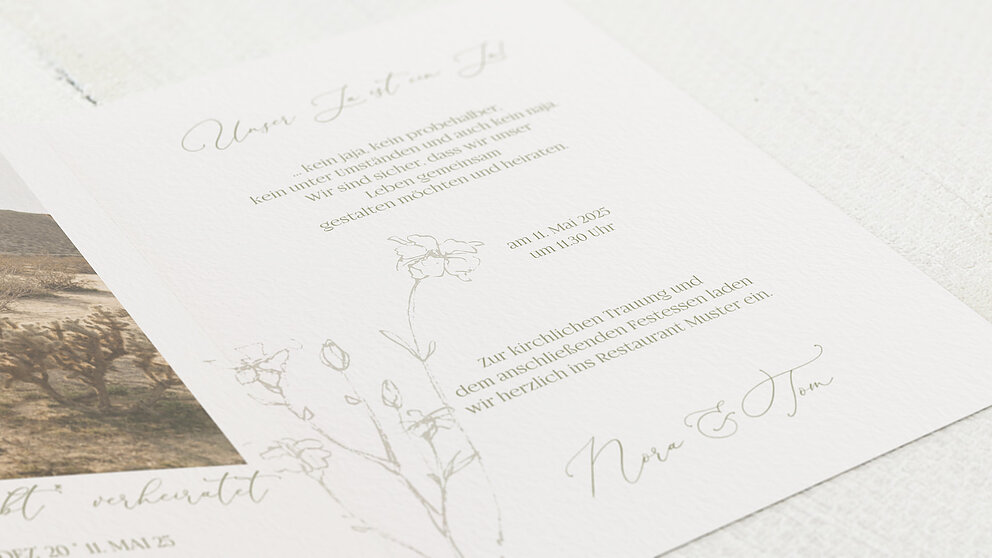 Unser Ja ist ein Ja!
... kein jaja, kein probehalber,
kein unter Umständen und auch kein naja.
Wir sind sicher, dass wir unser
Leben gemeinsam
gestalten möchten und heiraten.
am 11. Mai 2025
um 11.30 Uhr
Zur kirchlichen Trauung und
dem anschließenden Festessen laden
wir herzlich ins Restaurant Muster ein.
Nora & Tom
verheiratet
DEZ. 20 * 11. MAI 25